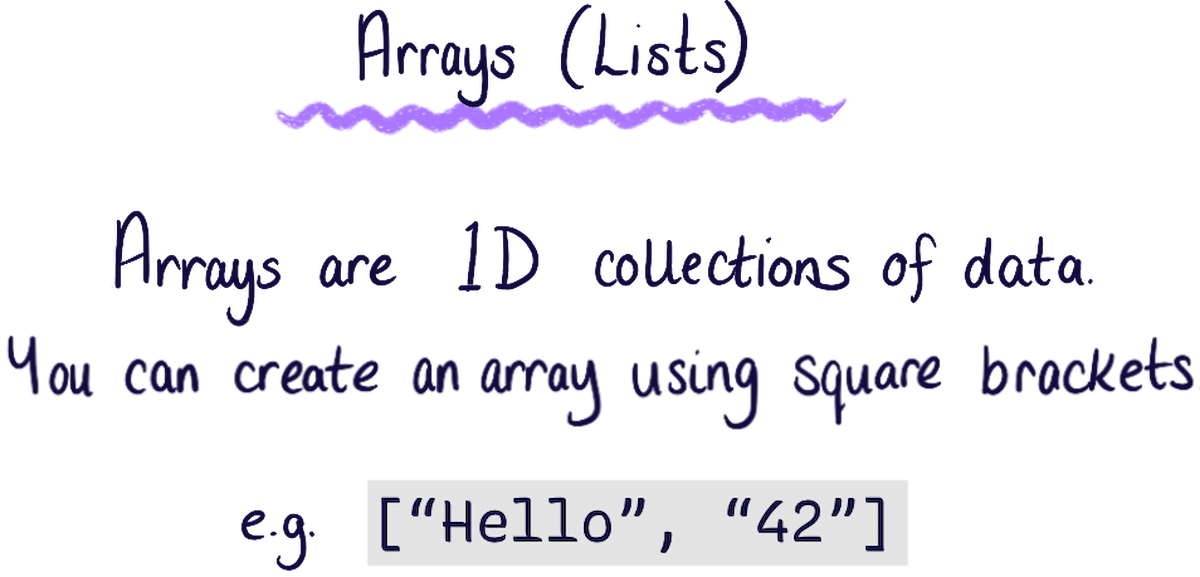 Arrays (Lists)
Arrays are 1D collections of data.
You can create an array using square brackets
e.g. [“Hello”, “42”]